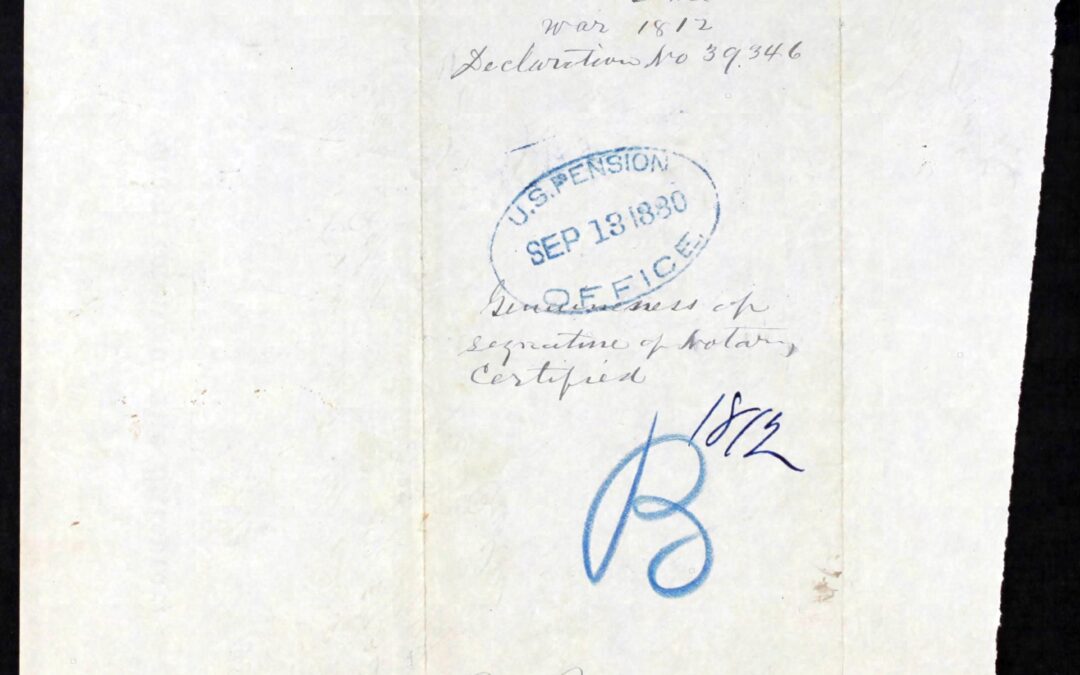 War 1812
Declaration No 39.346
U.S. PENSION
SEP 13 1880
OFFICE
Genuineness of
signature of Notary
Certified
1812
B